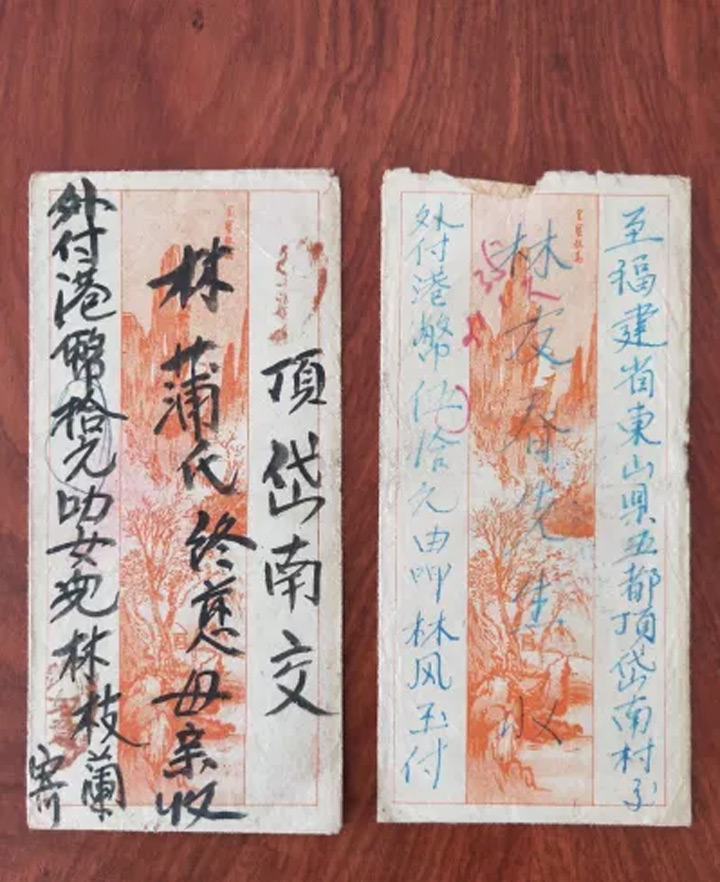 頂岱南交
林蒲氏終慈母亲收
外付港幣拾元叻女兒林枝蘭寄
至福建省東山県五都頂岱南村交
林友春先生收
外付港幣伍拾元由呷林风玉付